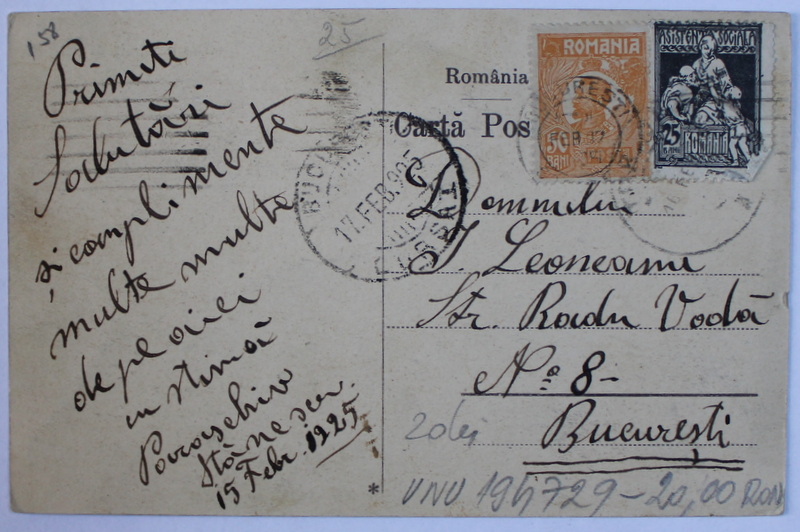 158
25
Primite
Salutări
și complimente
multe multe
de pe aici
cu stimă
Paraschiv
Stănescu
15 Febr. 1925
România
Cartă Pos
ROMANIA
50
BANI
ASISTENȚA SOCIALĂ
25
BANI
ROMÂNIA
17.FEB.925
Domnului
I. Leoneanu
Str. Radu Vodă
No 8-
București
20 lei
UNU 194729-20,00 RON
*